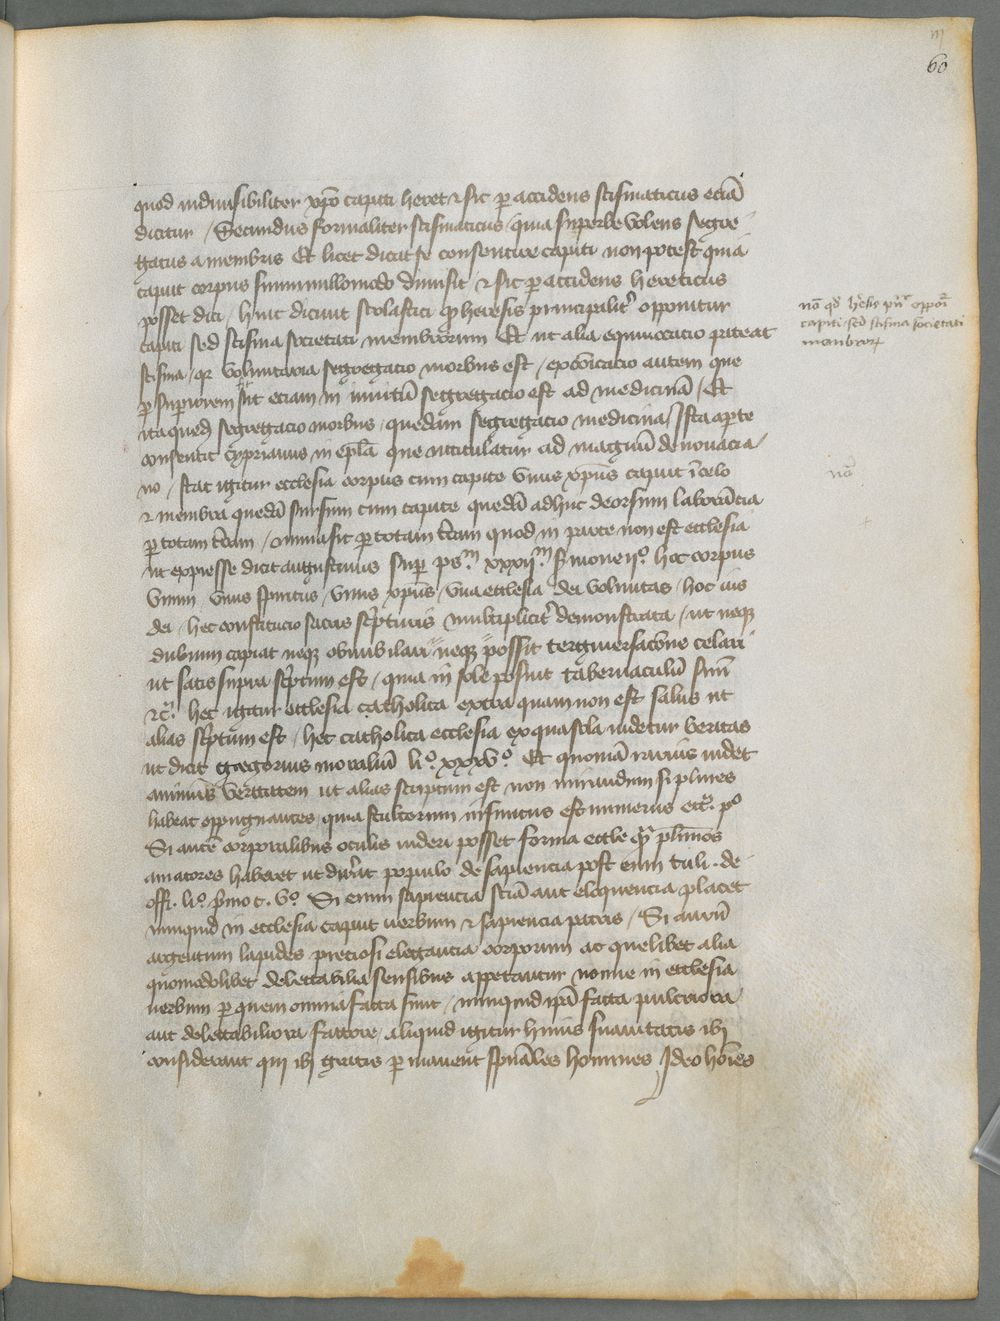 m
60
quod indiuisibiliter xpo capiti heret & sic p accidens scismaticus eciā
dicitur / Secundus formaliter scismaticus / quia superbe volens segre
gatus a membris Et licet dicat se consentire capiti non potest quia
caput corpus suum nullomodo dimisit / & sic p accidens hereticus
posset dici / hinc dicunt scolastici q heresis principalit̾ opponitur
capiti sed scisma societati membrorum Et ut alia equiuocatio pateat
scisma / qr voluntaria segregacio morbus est / excōicacio autem que
p superiorem fit eciam in inuitū segregacio est ad medicinā / Et
itaqueda segregacio morbus / quedam segregacio medicina / Ista aperte
consentit cyprianus in epla que intitulatur ad magnū de nouacia
no / stat igitur ecclesia corpus cum capite vnius xpus caput ī celo
& membra quedā sursum cum capite quedā adhuc deorsum laborācia
p totam t̾ram / omnia sic p totam t̾ram quod in parte non est ecclesia
ut expresse dicit augustinus sup ps.m xxxij.m s̾mone ij.o hoc corpus
vnum / vnus spiritus / vnus xpus / vna ecclesia dei voluntas / hoc ius
dei / hec constitucio sacris sc̾pturis multiplicit̾ demonstrata / ut neqz
dubium capiat neqz obnubilari neqz possit tergiuersacōne celari
ut satis supra sc̾ptum est / quia in sole posuit tabernaculū suū
&c̾. hec igitur ecclesia catholica extra quam non est salus ut
alias sc̾ptum est / hec catholica ecclesia ex qua sola uidetur veritas
ut dicit gregorius moraliū li.o xxxv.o Et quoniā rarius uidet
animus veritatem ut alias scriptum est non mirandum si plures
habeat oppugnantes / quia stultorum infinitus est numerus ecc̾. po
Si autē corporalibus oculis uideri posset forma eccle q̄ plimos
amatores haberet ut dix̾at populo de sapiencia post eum tuli. de
off. li.o p̾mo c. v.o Si enim sapiencia sciā aut eloquencia placet
nunquid in ecclesia caput uerbum & sapiencia patris / Si aurū
argentum lapides preciosi elegancia corporum ac quelibet alia
quomodolibet delectabilia sensibus appetantur nonne in ecclesia
uerbum p quem omnia facta sunt / nunquid ipa facta pulcriora
aut delectabiliora factore / aliquid igitur huius suauitatis ibi
considerant qui ibi gratis p manent spuales homines Ideo hoīes
no qd hesis pn̾ oppōi
capiti / sed scisma societati
membroꝝ
no